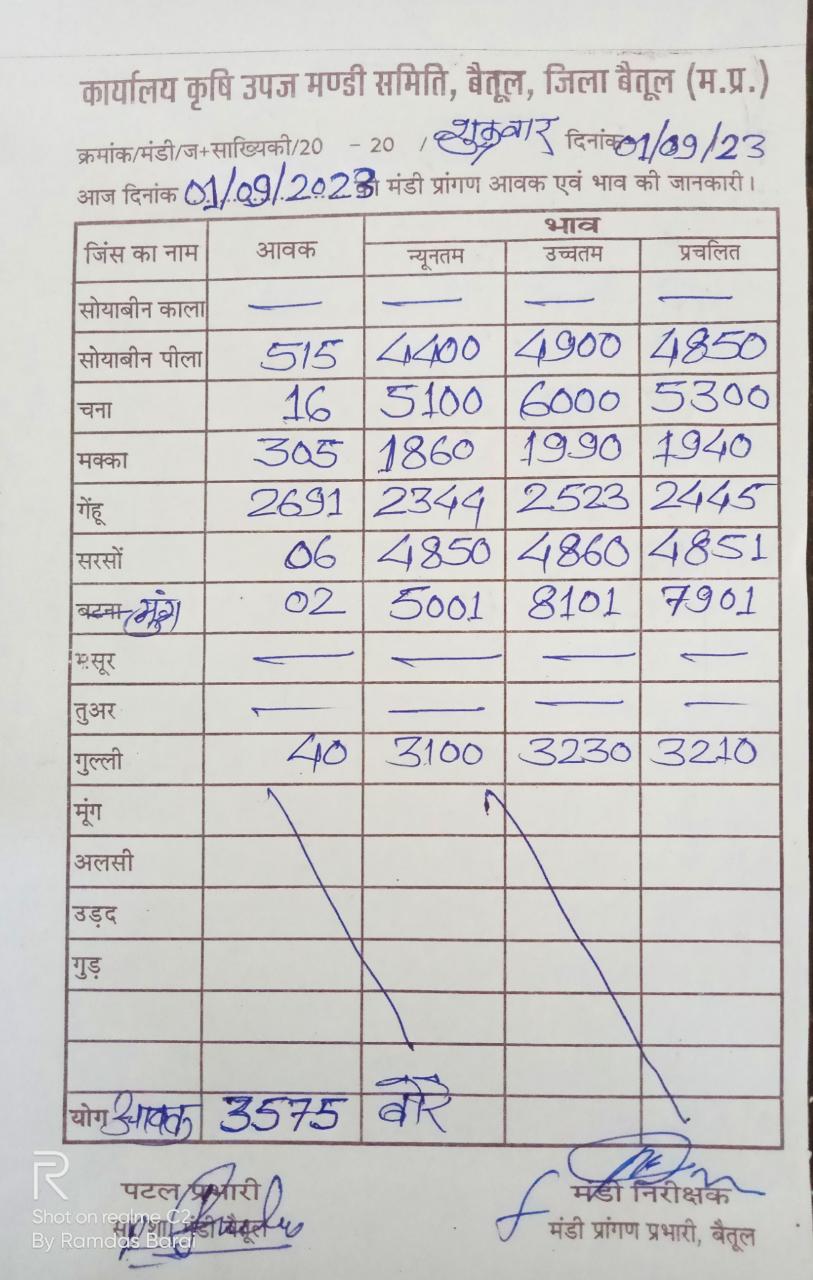 कार्यालय कृषि उपज मण्डी समिति, बैतूल, जिला बैतूल (म.प्र.)
क्रमांक/मंडी/ज+साख्यिकी/20 - 20 / शुक्रवार दिनांक 01/09/23
आज दिनांक 01/09/2023 को मंडी प्रांगण आवक एवं भाव की जानकारी।
जिंस का नाम आवक भाव
न्यूनतम उच्चतम प्रचलित
सोयाबीन काला — — — —
सोयाबीन पीला 515 4400 4900 4850
चना 16 5100 6000 5300
मक्का 305 1860 1990 1940
गेंहू 2691 2344 2523 2445
सरसों 06 4850 4860 4851
बटना मूंग 02 5001 8101 7901
मसूर — — — —
तुअर — — — —
गुल्ली 40 3100 3230 3210
मूंग
अलसी
उड़द
गुड़
योग आवक 3575 बोरे
पटल प्रभारी मंडी निरीक्षक
मंडी बैतूल मंडी प्रांगण प्रभारी, बैतूल
R
Shot on realme C2
By Ramdas Barai